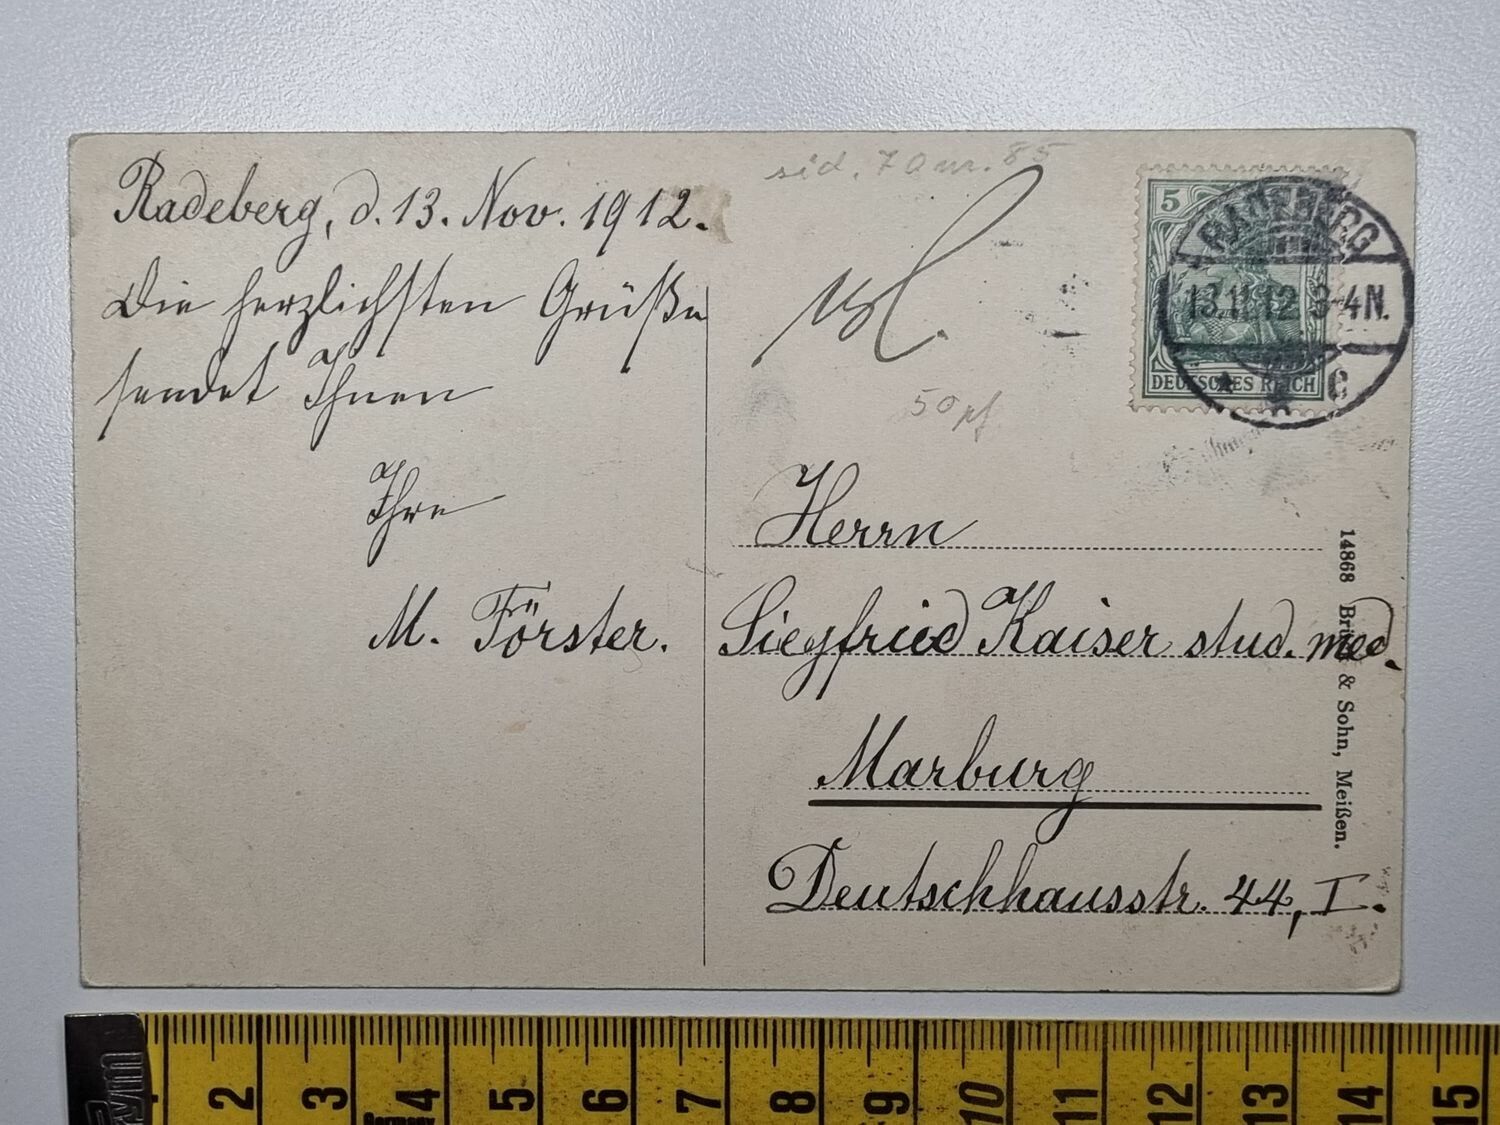 Radeberg, d. 13. Nov. 1912.
Die herzlichsten Grüße
sendet Ihnen
Ihre
M. Förster.
85
50 pf
5
DEUTSCHES REICH
RADEBERG
13.11.12. 3-4N.
* c
Herrn
Siegfried Kaiser stud. med.
Marburg
Deutschhausstr. 44, I.
14868 Brück & Sohn, Meißen.
2 3 4 5 6 7 8 9 10 11 12 13 14 15
Germany